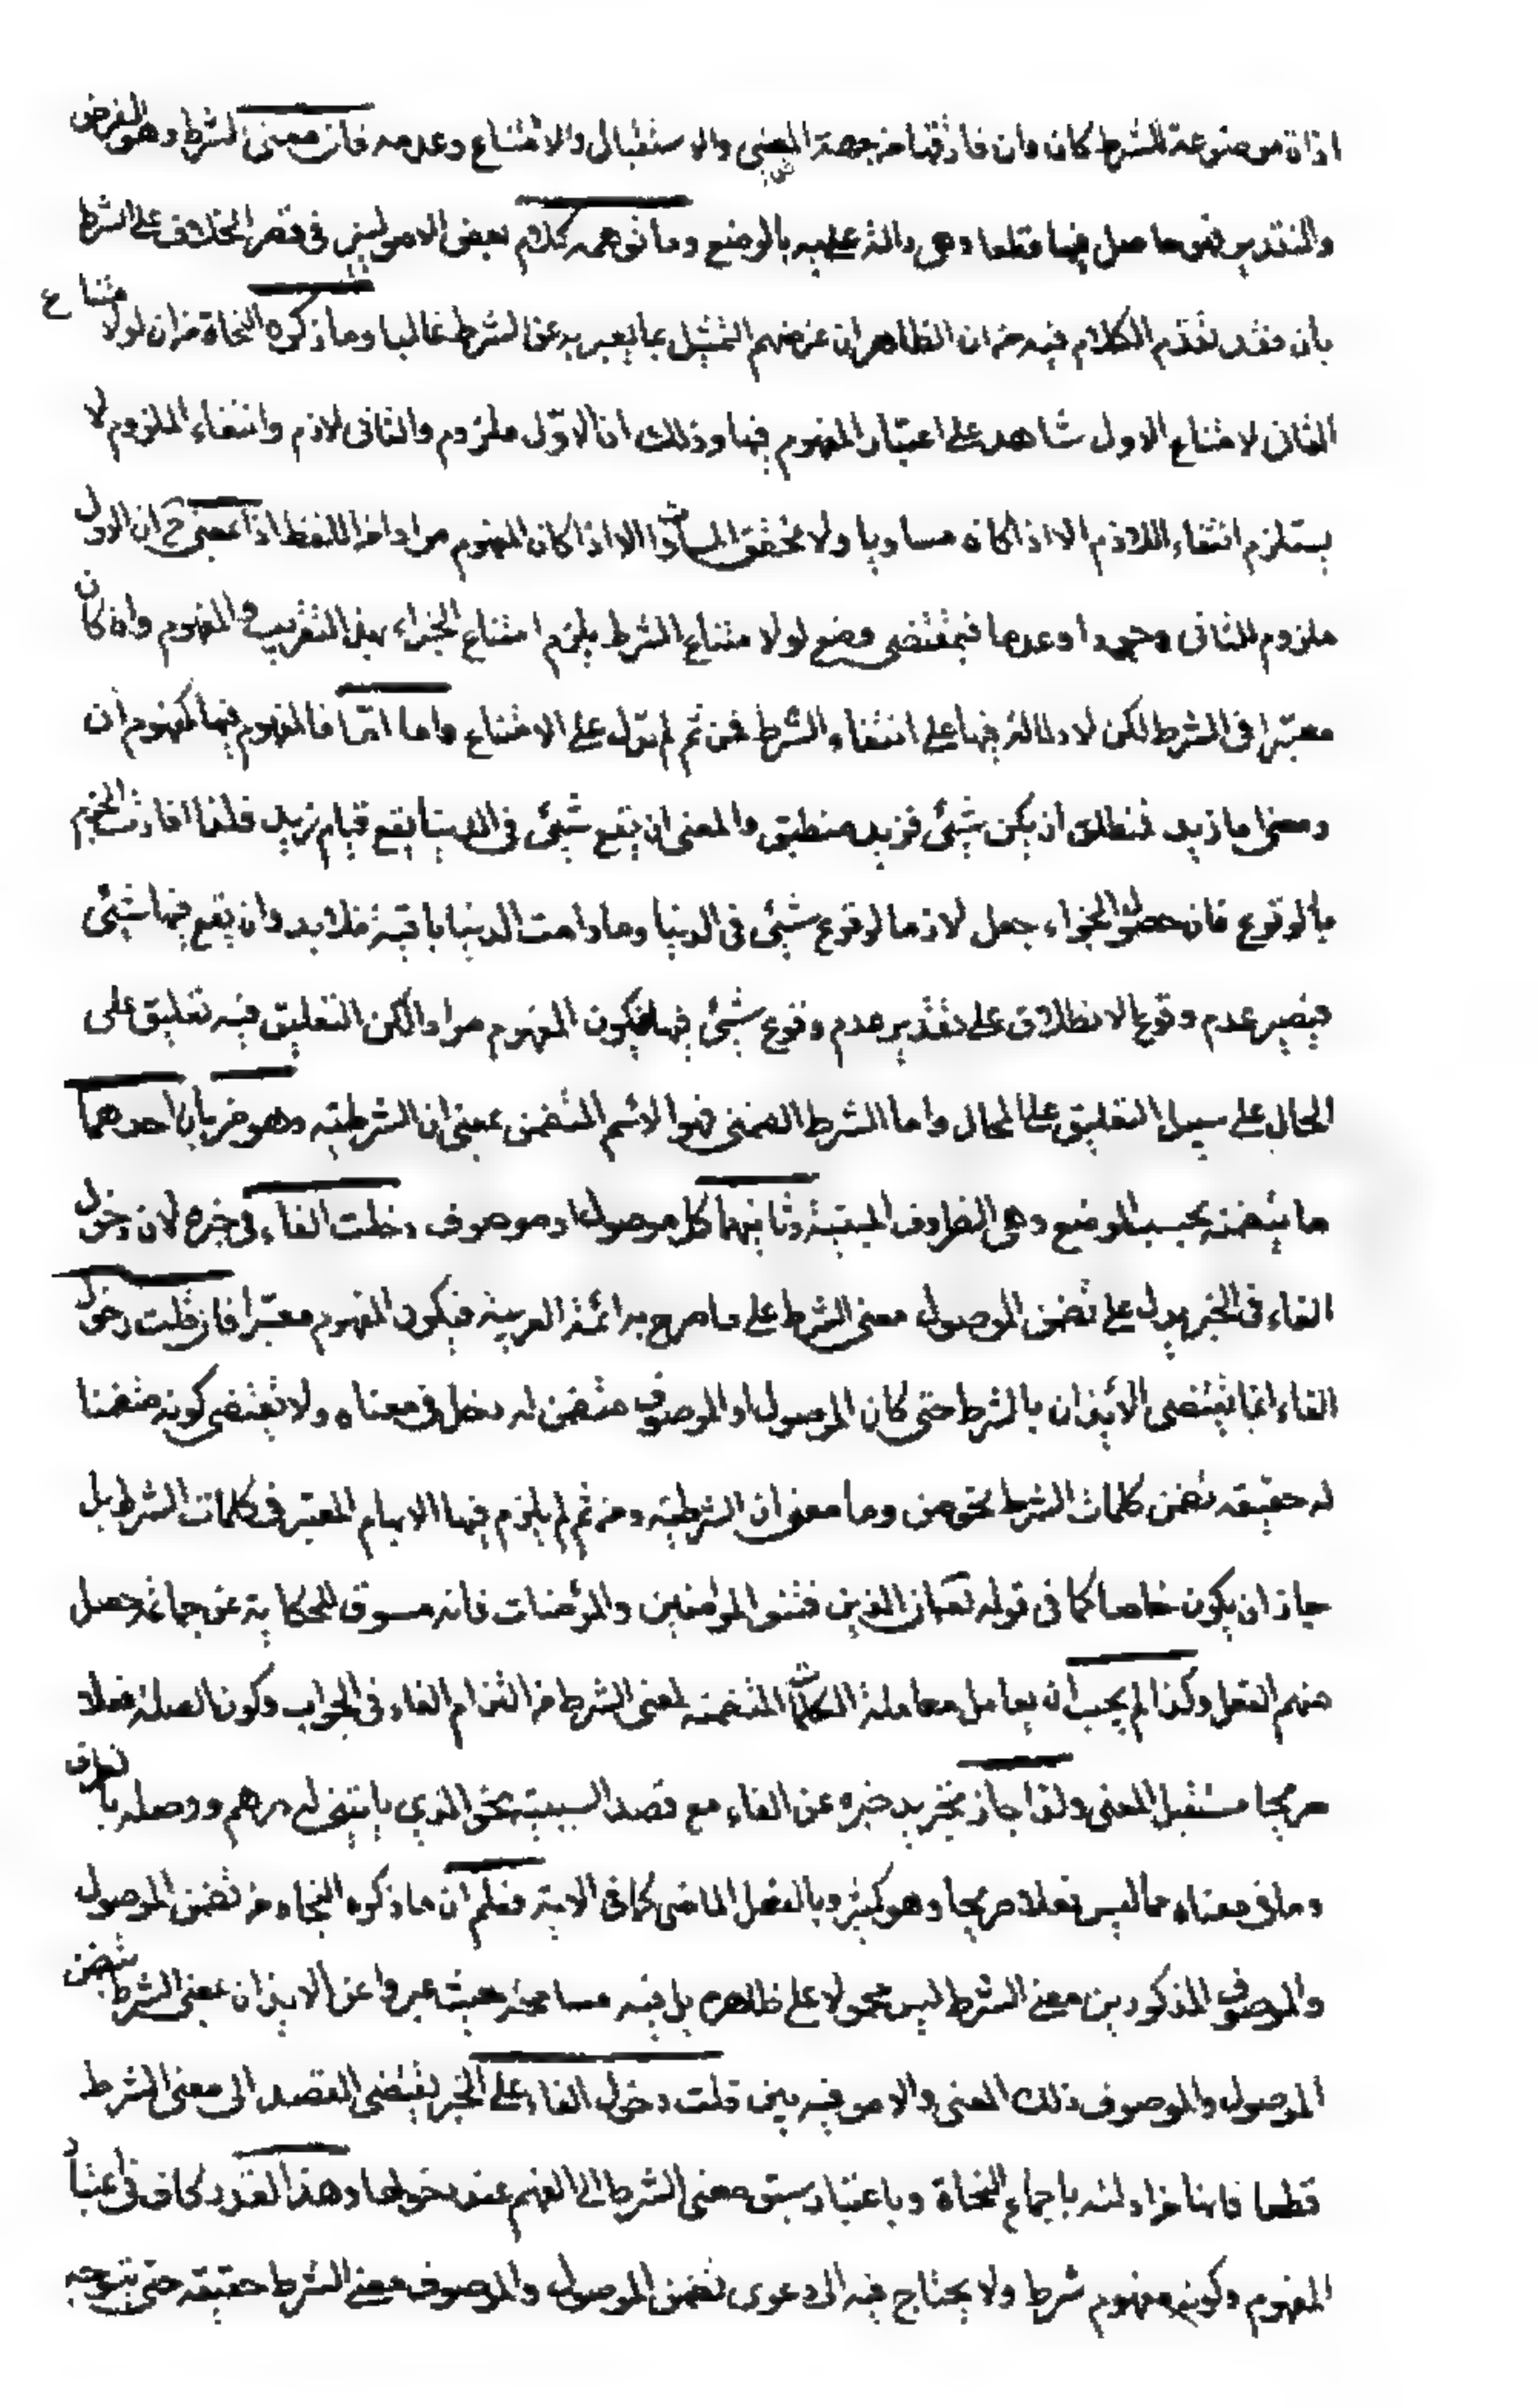 اداة موضوعة للشرط كان وان فارقتها من جهة المضى والاستقبال والامتناع وعدمه فان معنى الشرط وهو الفرض
والتقدير فهو حاصل فيها قطعا وهى دالة عليه بالوضع وما توهمه كلام بعض الاصوليين فى قصر الخلاف على الشرط
بان فقد تقدم الكلام فيه من ان الظاهر ان غرضهم التمثيل بما يعبر به عن الشرط غالبا وما ذكره النحاة من ان لو لامتناع
الثانى لامتناع الاول شاهد على اعتبار المفهوم فيها وذلك ان الاوّل ملزوم والثانى لازم وانتفاء الملزوم لا
يستلزم انتفاء اللازم الا اذا كان مساويا ولا تحقق المساواة الا اذا كان المفهوم مرادا من اللفظ اذ المعنى ح ان الاول
ملزوم للثانى وجودا وعدما فبمقتضى وضع لو لامتناع الشرط يلزم امتناع الجزاء بهذا التقريب والمفهوم وان كان
معتبرا فى الشرط لكن لا دلالة فيها على انتفاء الشرط فمن ثم لم تدل على الامتناع واما امّا فالمفهوم فيها كمفهوم ان
ومعنى اما زيد فمنطلق ان يكن شيئ فزيد منطلق والمعنى ان يقع شيئ فى الدنيا يقع قيام زيد فلذا افادت الجزم
بالوقوع فان حصول الجزاء جعل لازما لوقوع شيئ فى الدنيا وما دامت الدنيا باقية فلا بد وان يقع فيها شيئ
فيصير عدم وقوع الانطلاق على تقدير عدم وقوع شيئ فيها فيكون المفهوم مرادا لكن التعليق فيه تعليق على
المحال على سبيل التعليق على المحال واما الشرط الضمنى فهو الاسم المتضمن معنى ان الشرطية وهو ضربان احدهما
ما يتضمنه بحسب الوضع وهى الظروف المبنية وثانيهما كل موصول او موصوف دخلت الفاء فى خبره لان دخول
الفاء فى الخبر يدل على تضمن الموصول معنى الشرط على ما صرح به ائمة العربية فيكون المفهوم معتبرا فان قلت دخول
الفاء انما يقتضى الايذان بالشرط حتى كان الموصول او الموصوف متضمن له دخل فى معناه ولا يقتضى كونه متضمنا
له حقيقه تضمن كلمات الشرط نحو من وما معنى ان الشرطية ومن ثم لم يلزم فيها الابهام المعتبر فى كلمات الشرط بل
جاز ان يكون خاصا كما فى قوله تعالى ان الذين فتنوا المؤمنين والمؤمنات فانه مسوق للحكاية عن جماعة حصل
منهم الفعل وكذا لم يجب ان يعامل معاملة الكلمات المتضمنه لمعنى الشرط من التزام الفاء فى الجواب وكون الصلة فعلا
صريحا مستقبل المعنى ولذا جاز تجريد خبره عن الفاء مع قصد السببية نحو الذى ياتينى له درهم ووصله بالظرف
وما فى معناه مما ليس فعلا صريحا وهو كثير وبالفعل الماضى كما فى الاية فعلم ان ما ذكره النحاه من تضمن الموصول
والموصوف المذكورين معنى الشرط ليس محمولا على ظاهره بل فيه مسامحة حيث عبروا عن الايذان بمعنى الشرط بتضمن
الموصول والموصوف ذلك المعنى والامر فيه هين قلت دخول الفاء على الخبر يقتضى القصد الى معنى الشرط
قطعا فانها جزاء له باجماع النحاة وباعتبار سبق معنى الشرط الى الفهم عند دخولها وهذا القدر كاف فى اعتبار
المفهوم وكونه مفهوم شرط ولا يحتاج فيه الى دعوى تضمن الموصول والموصوف معنى الشرط حقيقه حتى يتوجه